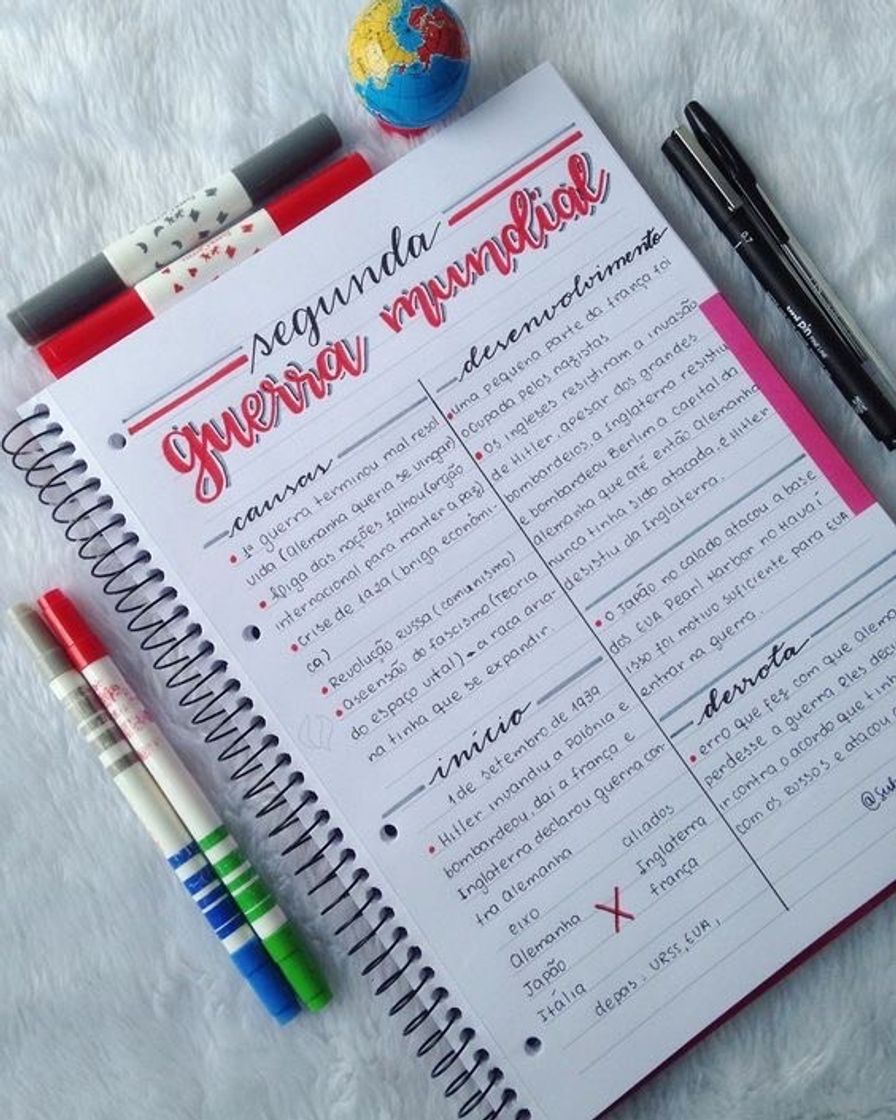 segunda
guerra mundial
causas
• 1ª guerra terminou mal resol
vida (alemanha queria se vingar)
• Aliga das nações falhou (orgão
internacional para manter a paz)
• crise de 1929 (briga econômi-
ca)
• Revolução Russa (comunismo)
• ascensão do fascismo (Teoria
do espaço vital) → a raça aria-
na tinha que se expandir.
início
1 de setembro de 1939
• Hitler invandiu a Polônia e
bombardeou, daí a frança e
Inglaterra declarou guerra con-
tra alemanha
eixo
aliados
Alemanha
X
Inglaterra
Japão
frança
Itália
depois: URSS, EUA,
desenvolvimento
• uma pequena parte da frança foi
ocupada pelos nazistas
• Os ingleses resistiram a invasão
de Hitler, apesar dos grandes
bombardeios, a Inglaterra resistiu
e bombardeou Berlim a capital da
alemanha que até então Alemanha
nunca tinha sido atacada, e Hitler
desistiu da Inglaterra.
• O Japão no calado atacou a base
dos EUA Pearl Harbor no Havaí
isso foi motivo suficiente para EUA
entrar na guerra.
derrota
• erro que fez com que Alem
perdesse a guerra Eles deci
ir contra o acordo que tin
com os Russos e atacou
0.7
pin